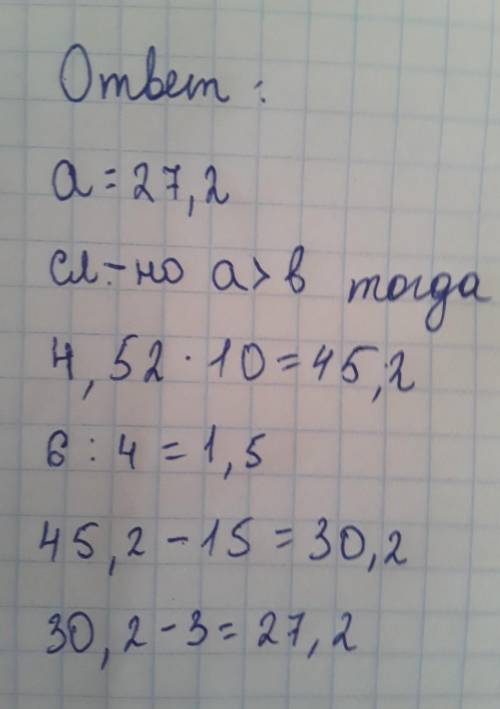 Ответ:
a = 27,2
сл.-но a > в тогда
4,52 · 10 = 45,2
6 : 4 = 1,5
45,2 - 15 = 30,2
30,2 - 3 = 27,2